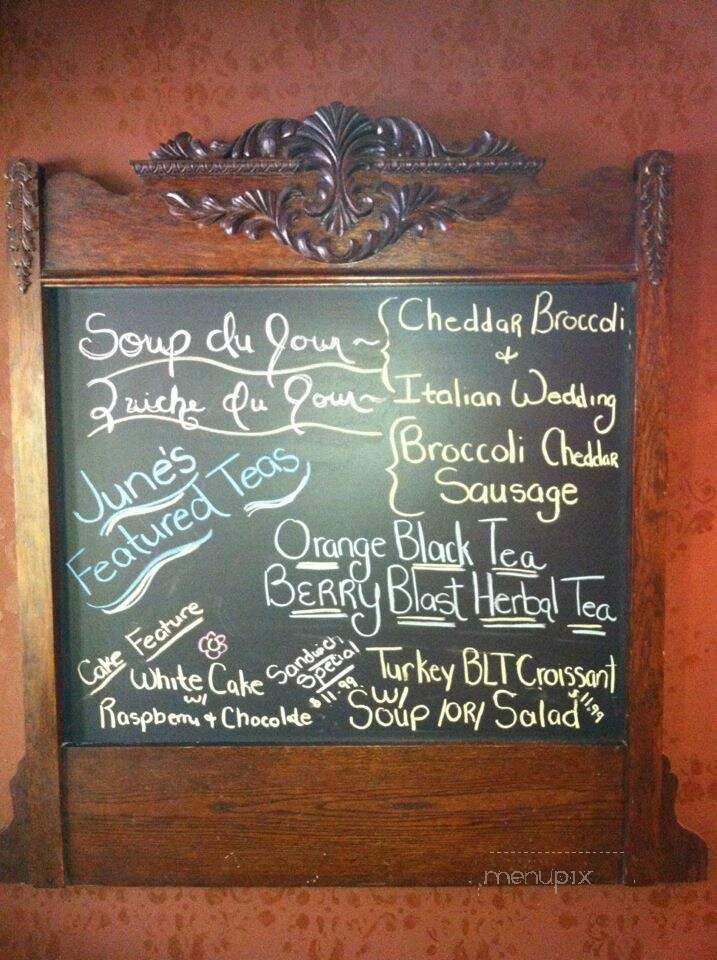 Soup du Jour ~ { Cheddar Broccoli
&
Italian Wedding
Quiche du Jour ~ { Broccoli Cheddar
Sausage
June's
Featured Teas
Orange Black Tea
Berry Blast Herbal Tea
Cake Feature
White Cake
w/
Raspberry & Chocolate
Sandwich
Special
$11.99
Turkey BLT Croissant
w/
Soup /or/ Salad $11.99
menupix